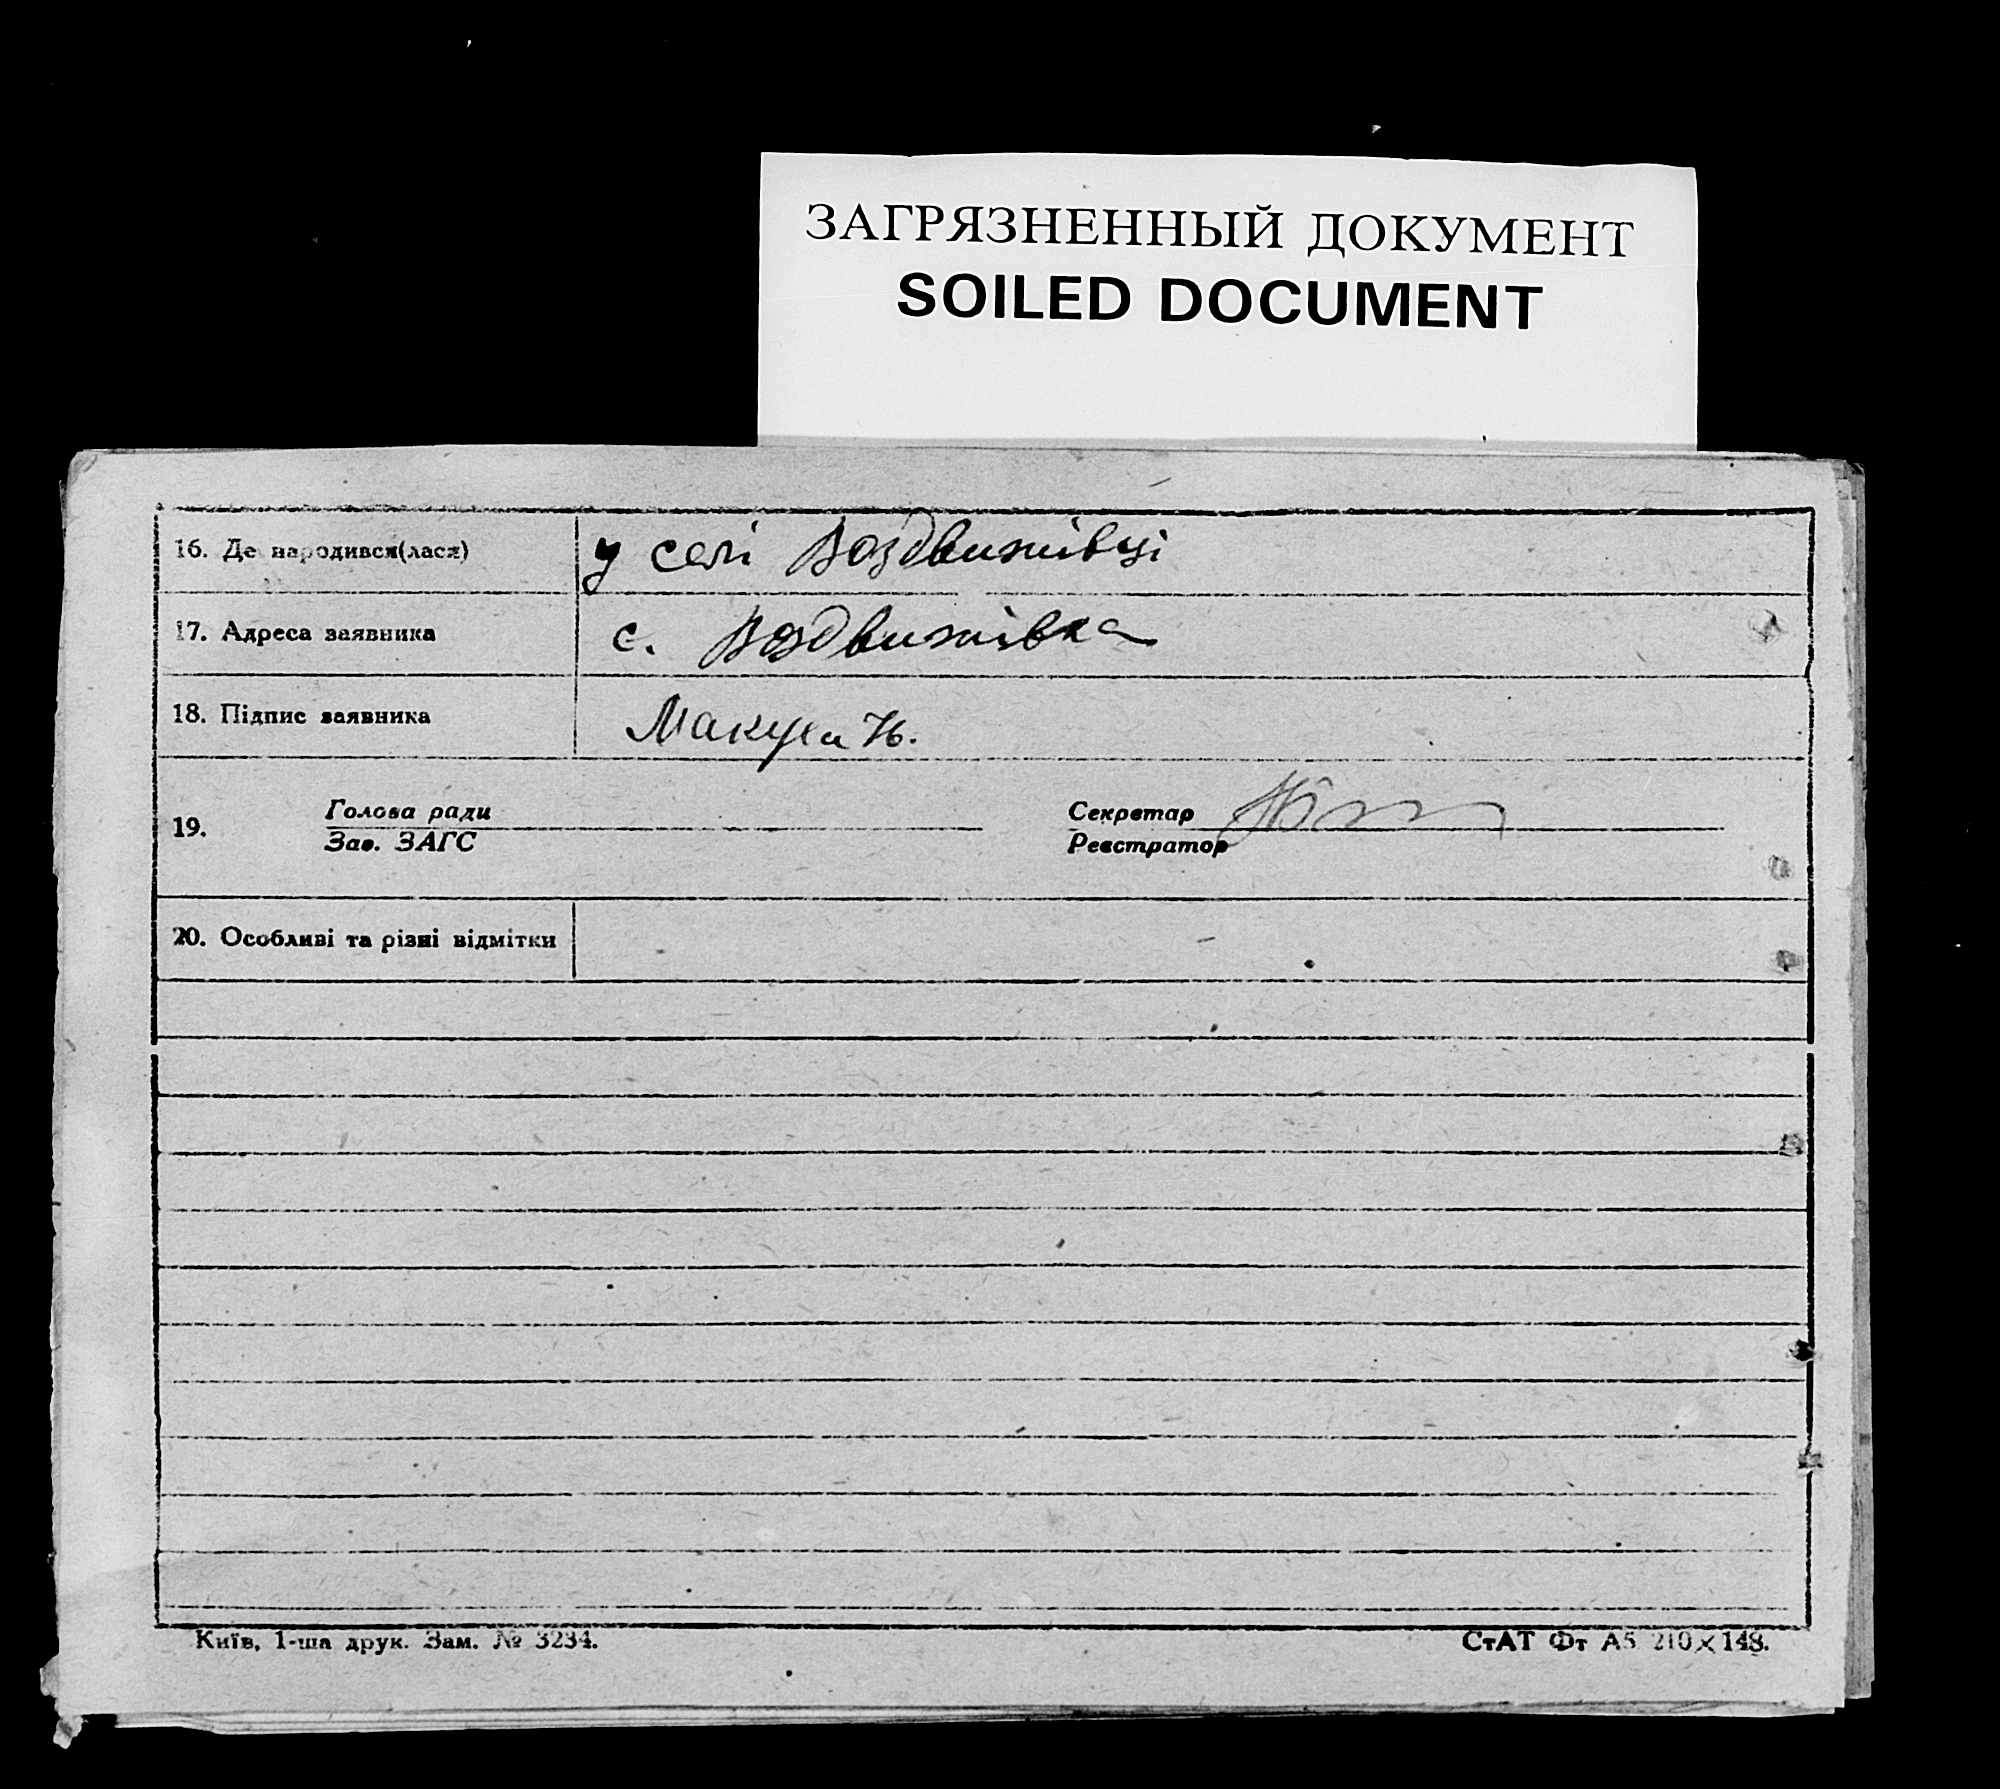 ЗАГРЯЗНЕННЫЙ ДОКУМЕНТ
SOILED DOCUMENT
16. Де народився(лася) у селі Воздвижівці
17. Адреса заявника с. Воздвижівка
18. Підпис заявника Макуха Н.
19. Голова ради Секретар
Зав. ЗАГС Реєстратор
20. Особливі та різні відмітки
Київ, 1-ша друк. Зам. № 3234. СтАТ Фт А5 210×148.